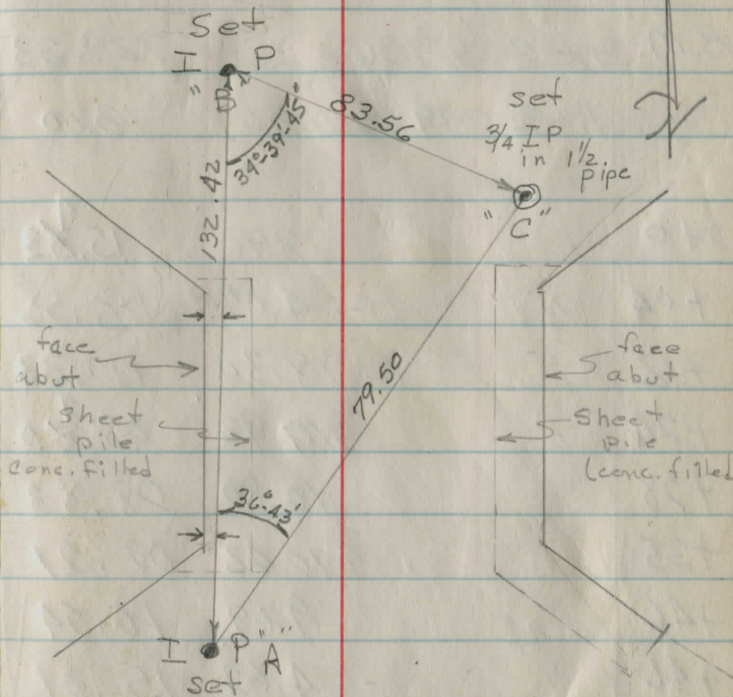 Set
I P
"B"
34°-39'-45"
83.56
set
3/4 IP
in 1 1/2
pipe
"C"
132.42
face
abut
sheet
pile
conc. filled
79.50
face
abut
Sheet
pile
(conc. filled
36°-43'
I P "A"
set